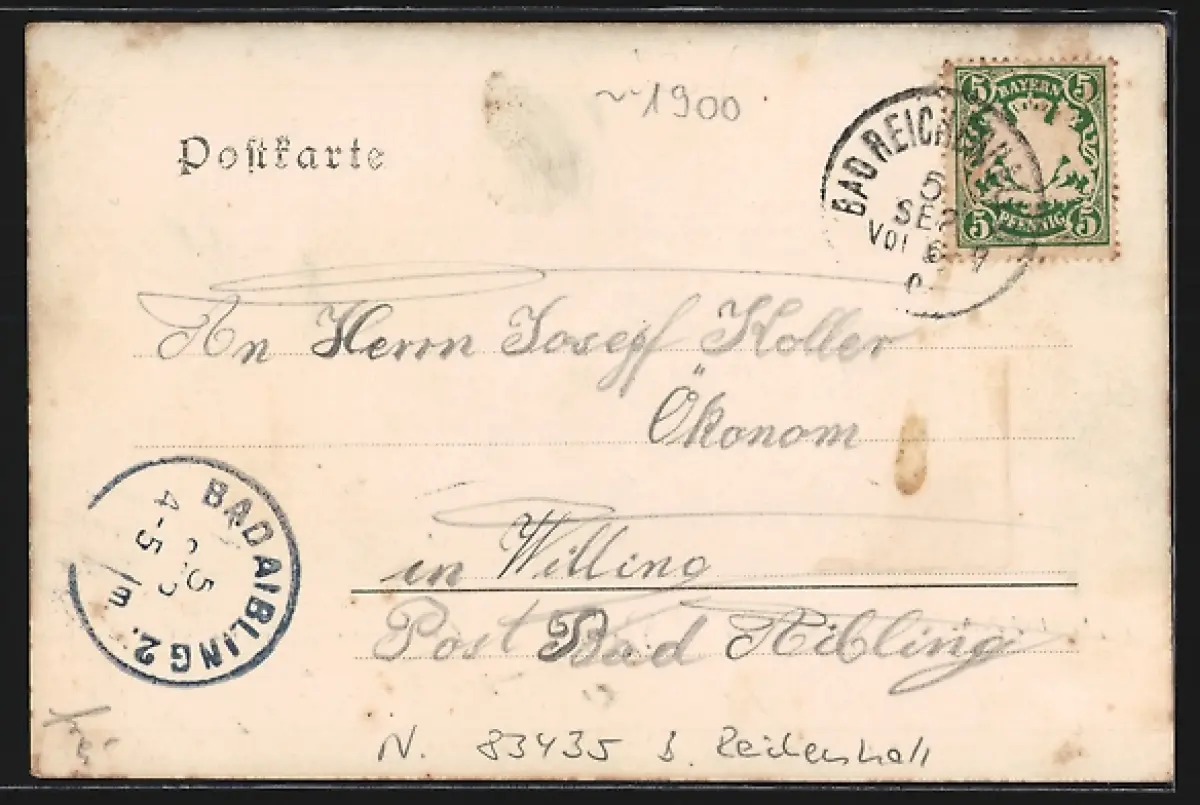 ~1900
Postkarte
5 BAYERN 5
5 PFENNIG 5
BAD REICHENHALL
5
SEP
VOR 6-7
An Herrn Josef Koller
Ökonom
in Willing
Post Bad Aibling
BAD AIBLING 2.
4-5
5
N. 83435 B. Reichenhall